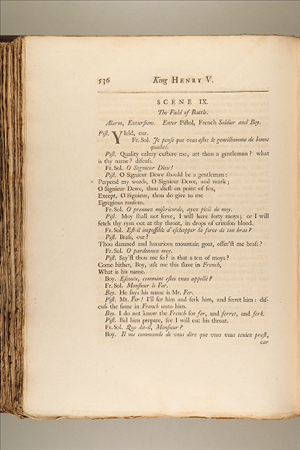 536 King HENRY V.
SCENE IX.
The Field of Battle.
Alarm, Excursions. Enter Pistol, French Soldier and Boy.
Pist. YIeld, cur.
Fr. Sol. Je pense que vous estes le gentilhomme de bonne
qualité.
Pist. Quality calmy custure me, art thou a gentleman? what
is thy name? discuss.
Fr. Sol. O Signieur Dieu!
Pist. O Signieur Dewe should be a gentleman:
Perpend my words, O Signieur Dewe, and mark;
O Signieur Dewe, thou diest on point of fox,
Except, O Signieur, thou do give to me
Egregious ransom.
Fr. Sol. O prennez misericorde, ayez pitié de moy.
Pist. Moy shall not serve, I will have forty moys; or I will
fetch thy rym out at thy throat, in drops of crimson blood.
Fr. Sol. Est-il impossible d'eschapper la force de ton bras?
Pist. Brass, cur?
Thou damned and luxurious mountain goat, offer'st me brass?
Fr. Sol. O pardonnez moy.
Pist. Say'st thou me so? is that a ton of moys?
Come hither, Boy, ask me this slave in French,
What is his name.
Boy. Escoute, comment estes vous appellé?
Fr. Sol. Monsieur le Fer.
Boy. He says his name is Mr. Fer.
Pist. Mr. Fer! I'll fer him and ferk him, and ferret him: dis-
cuss the same in French unto him.
Boy. I do not know the French for fer, and ferret, and ferk.
Pist. Bid him prepare, for I will cut his throat.
Fr. Sol. Que dit-il, Monsieur?
Boy. Il me commande de vous dire que vous vous teniez prest,
car